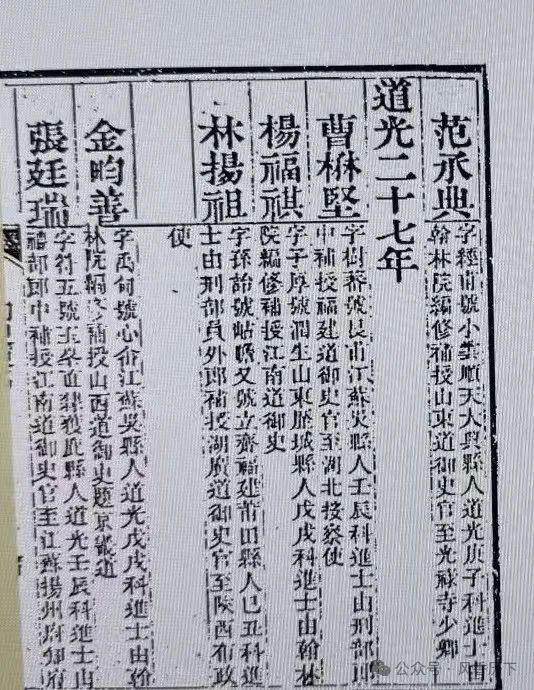 范承典
字稺甫號小雲順天大興縣人道光庚子科進士由
翰林院編修補授山東道御史官至光祿寺少卿
道光二十七年
曹楙堅
字樹蕃號艮甫江蘇吳縣人壬辰科進士由刑部郎
中補授福建道御史官至湖北按察使
楊福祺
字子厚號潤生山東歷城縣人戊戌科進士由翰林
院編修補授江南道御史
林揚祖
字孫詒號岵瞻又號立齋福建莆田縣人己丑科進
士由刑部員外郎補授湖廣道御史官至陝西布政
使
金畇善
字禹甸號心畬江蘇吳縣人道光戊戌科進士由翰
林院編修補授山西道御史題京畿道
張廷瑞
字符五號玉 直隸獲鹿縣人道光壬辰科進士由
禮部郎中補授江南道御史官至江蘇揚州府知府
公众号·风 天下